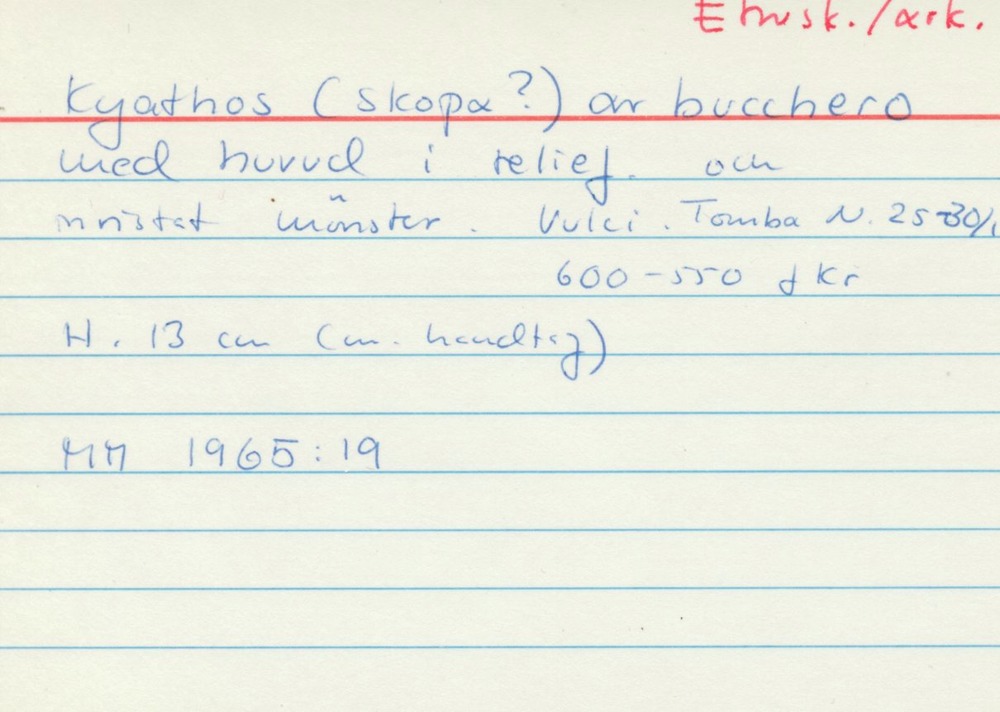 Etrusk./ark.
Kyathos (skopa?) av bucchero
med huvud i relief. och
inristat mönster. Vulci. Tomba N. 25-30/
600-550 f Kr
H. 13 cm (m. handtag)
MM 1965:19